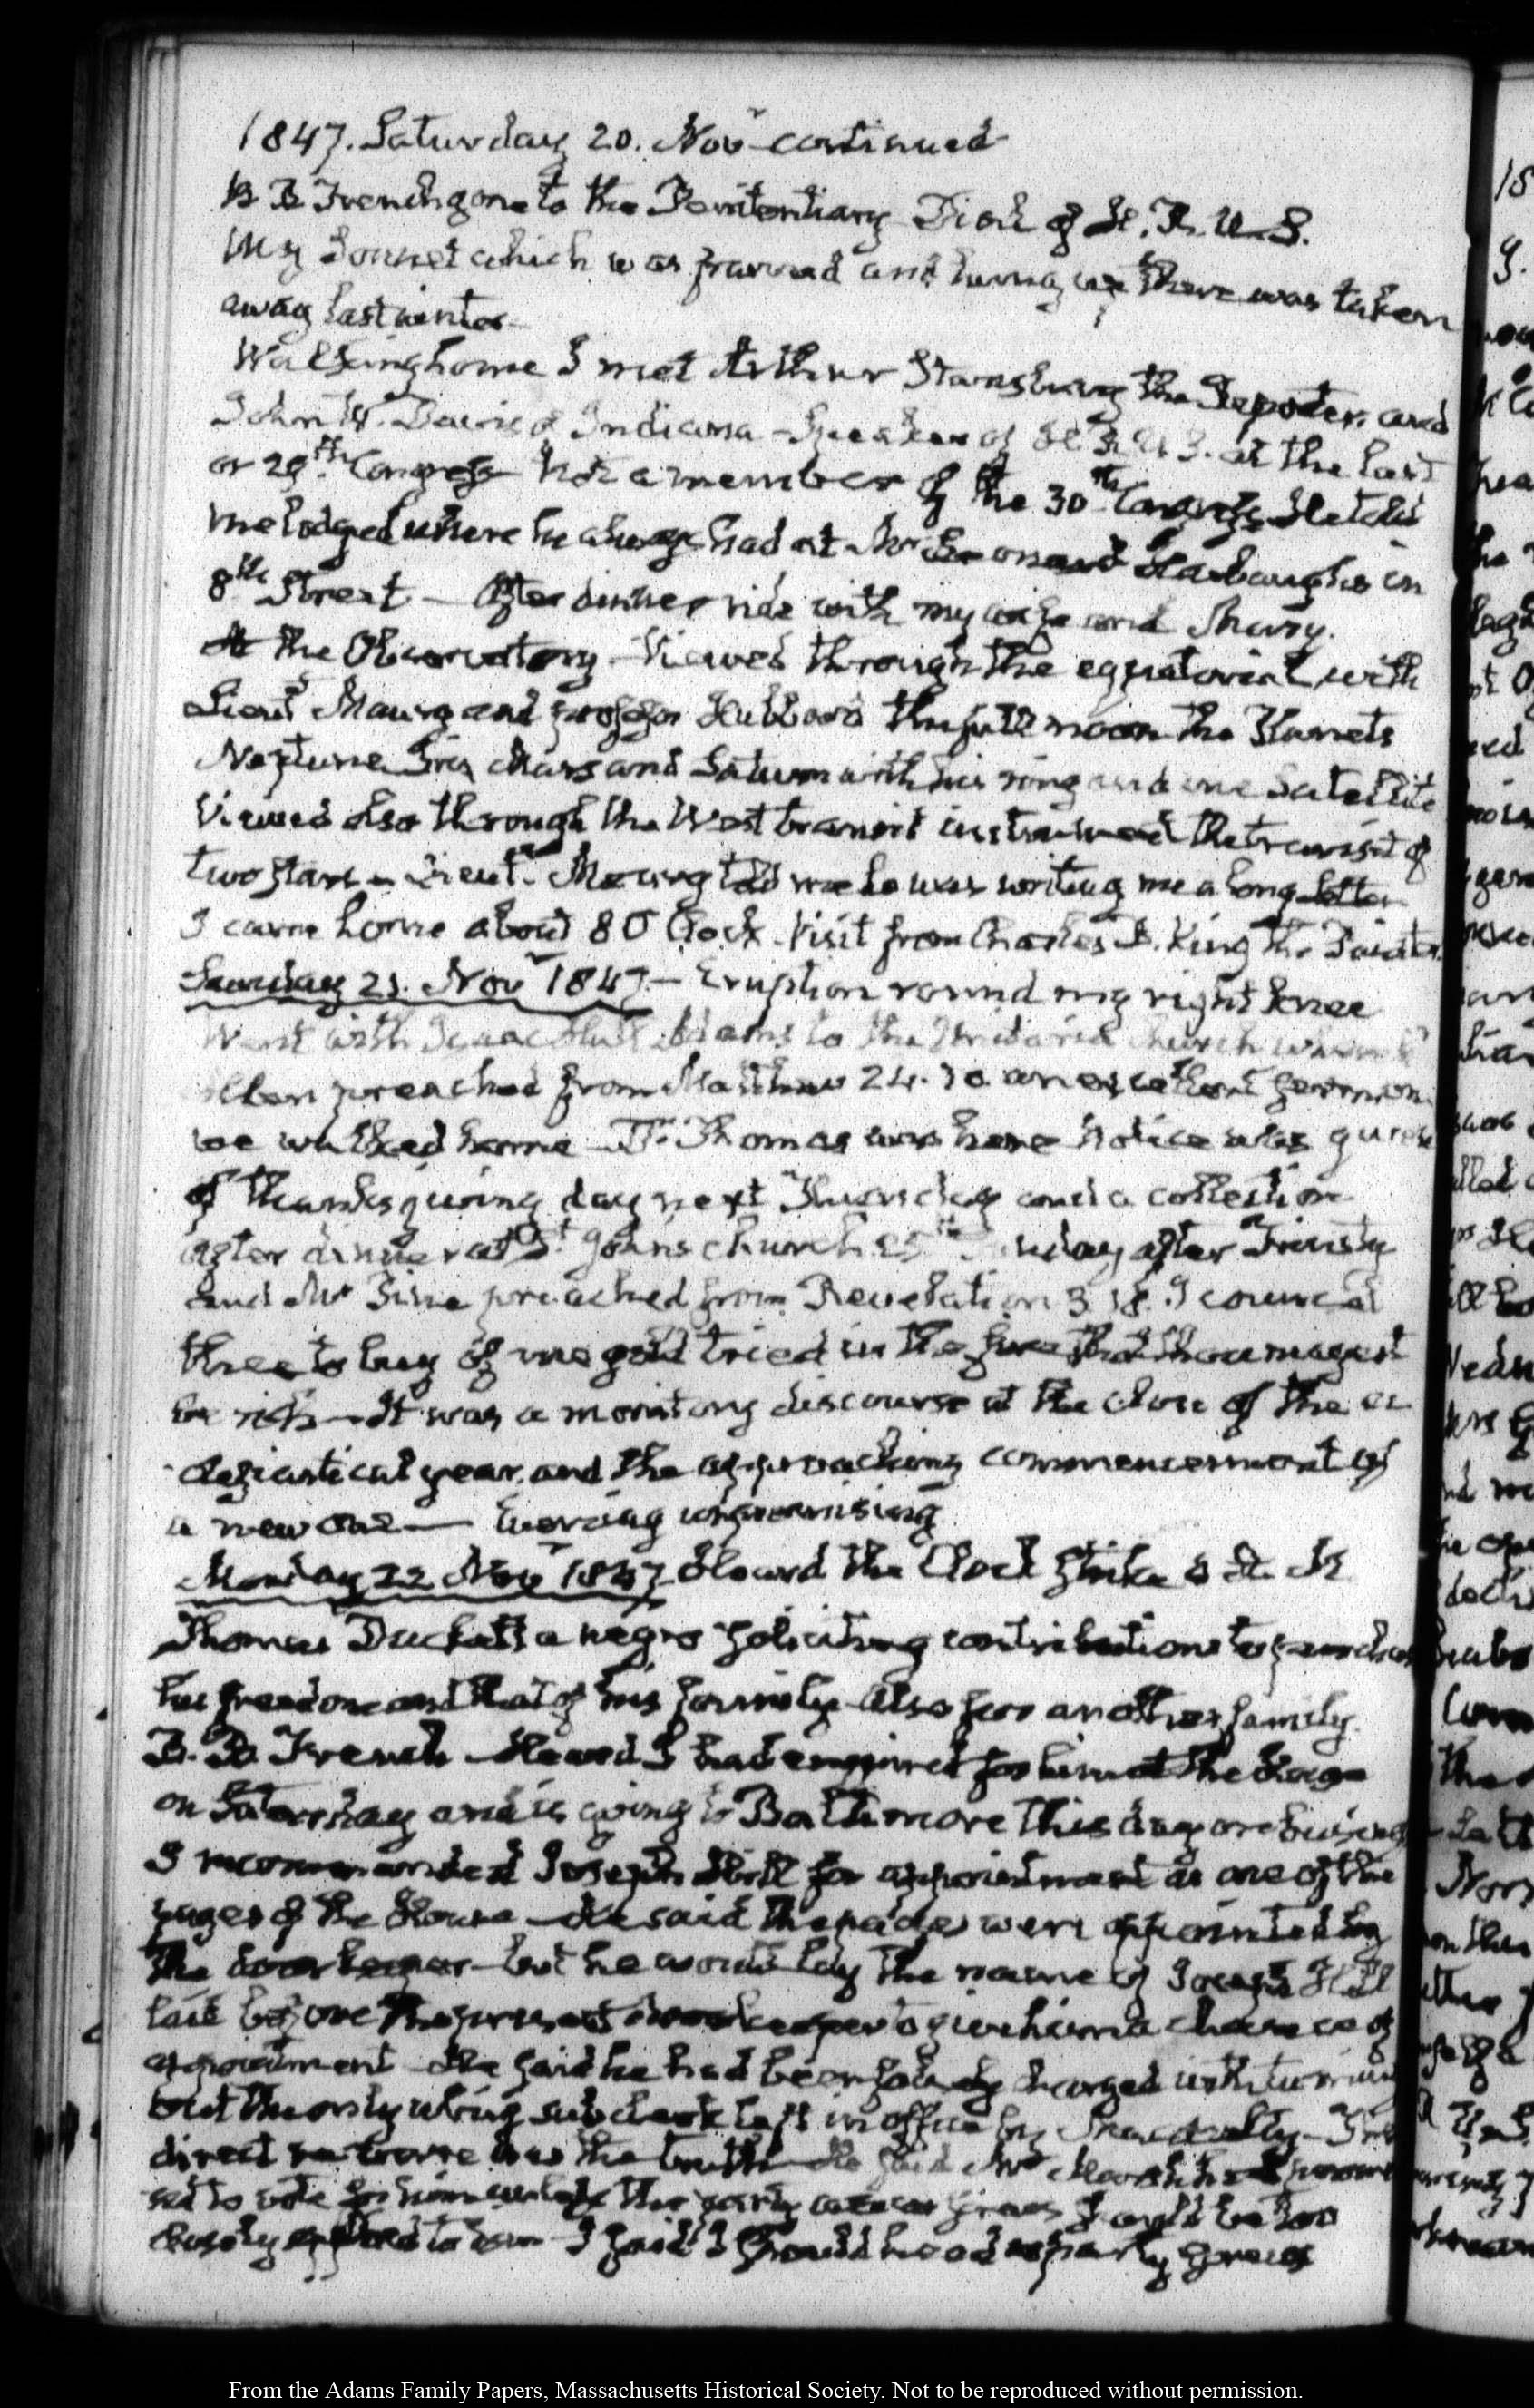 1847. Saturday 20. Novr continued
B B French gone to the Penitentiary of H. R. U. S.
My Sonnet which was framed and hung up there was taken
away last winter
Walking home I met Arthur Stansbury the Reporter, and
John W. Davis of Indiana - Speaker of H R U S. at the last
or 29th Congress not a member of the 30th Congress. He told
me lodged where he always had at Mr Leonard Harbaugh's in
8th Street — After dinner ride with my wife and Mary.
At the Observatory - Viewed through the equatorial with
Lieut Maury and professor Hubbard the full moon the Planets
Neptune Iris Mars and Saturn with his ring and one Satellite
Viewed also through the West transit instrument the transit of
two stars - Lieut. Maury told me he was writing me a long letter
I came home about 8 O'Clock. Visit from Charles B. King the Painter.
Sunday 21. Novr 1847 — Eruption round my right knee
Went with Isaac Hull Adams to the Unitarian Church where
Allen preached from Matthew 24. an excellent sermon
we walked home - Thomas was here Notice was given
of thanksgiving day next Thursday and a collection
after dinner at St Johns church 25th Sunday after Trinity
and Mr Pine preached from Revelation 3 18. I counsel
thee to buy of me gold tried in the fire that thou mayest
be rich - It was a monitory discourse at the close of the ec
clesiastical year, and the approaching commencement of
a new one — Evening unpromising
Monday 22 Novr 1847. Heard the Clock strike
Thomas Duckett a negro soliciting contributions to purchase
his freedom and that of his family - also for another family.
B. B. French Heard I had enquired for him at the House
on Saturday and is going to Baltimore this day
I recommended Joseph Hill for appointment as one of the
pages of the House - He said the pages were appointed by
the doorkeeper - but he would lay the name of Joseph Hill
before the present doorkeeper to give him a chance of
appointment - He said he had been falsely charged with turning
out the only whig sub clerk left in office by
direct reverse was the truth - He said Mr Marsh had promi
sed to vote for him unless the party screws should be too
closely applied to him - I said I should heed no party screws